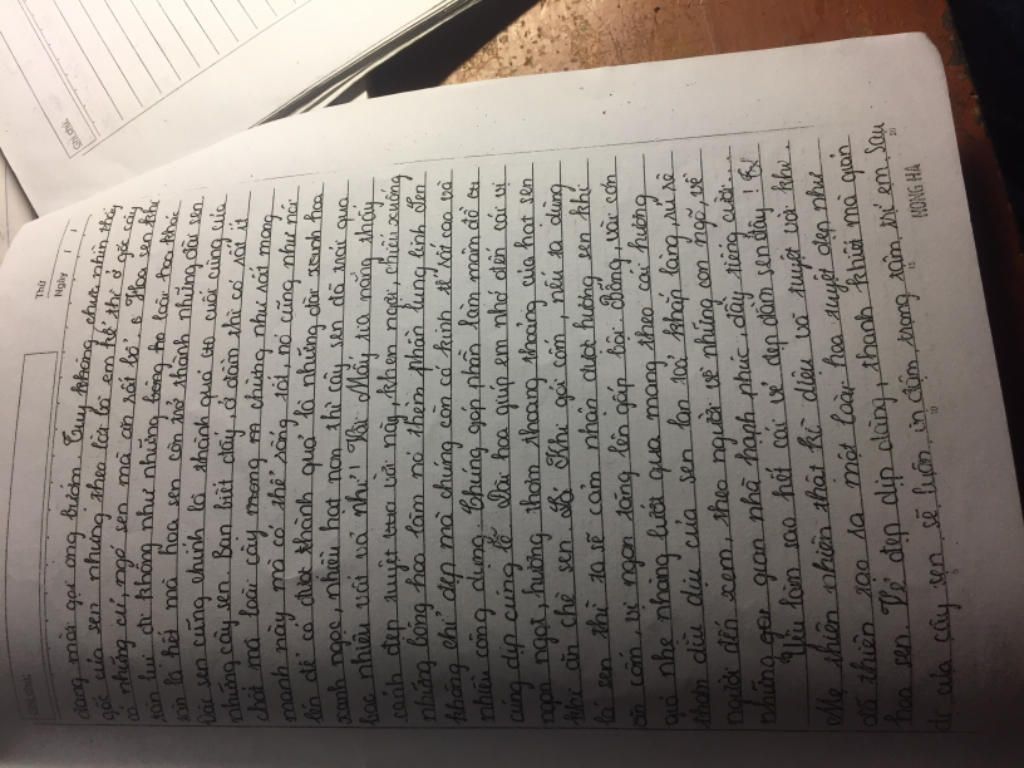 Ghi chú
Thứ
Ngày
dạng mài gai ong bướm. Tuy không thực nhìn thấy
gốc của sen nhưng theo lời bố em kể thì ở gốc cây
có những củ, ngó sen mà còn rất bổ. Hoa sen khi
tàn lụi đi không như những bông hoa loài hoa khác
tàn là hết mà hoa sen còn nở thành những đài sen.
Đài sen cũng chính là thành quả cuối cùng của
những cây sen. Bạn biết đấy ở đầm thì có rất ít
chất mà loài cây mong m chừng như vất mỏng
manh này mà có thể sống tới, nó cũng như nói
lên để có được thành quả là những đài xanh hoa
xanh ngọc, nhiều hạt non thì cây sen đã trải qua
bao nhiêu vất vả nhỉ! Hồi Mấy nữa nắng thấy
cảnh đẹp tuyệt vời này, khen ngợi, chiếu xuống
những bông hoa làm nó thêm phần lung linh. Sen
không chỉ đẹp mà chúng còn có kinh tế rất cao và
nhiều công dụng. Chúng góp phần làm món đồ ăn
cúng dịp cúng lễ. Đài hoa giúp em nhớ đến cái vị
ngon ngọt, hưởng thoảng thoang thoảng của hạt sen
khi ăn chè sen. Lá Khi gói cốm, nếu ta dùng
lá sen thì ta sẽ cảm nhận được hương sen khi
ăn cốm, vị ngon tăng lên gấp bội. Bỗng, vài cơn
gió nhẹ nhàng lướt qua mang theo cái hương
thơm dìu dịu của sen lan toả khắp làng, rủ rê
người đến xem, theo người về những con ngõ, về
những gia gian nhà hạnh phúc đầy tiếng cười.
Yêu làm sao hết cái vẻ đẹp đầm sen đây! Bà
Mẹ thiên nhiên thật kì diệu và tuyệt vời khi
đã thiên tạo ra một loài hoa tuyệt đẹp như
hoa sen. Vẻ đẹp dịp dàng, thanh khiết mà giản
dị của cây sen sẽ luôn in đậm trong tâm trí em sau
HONG HA